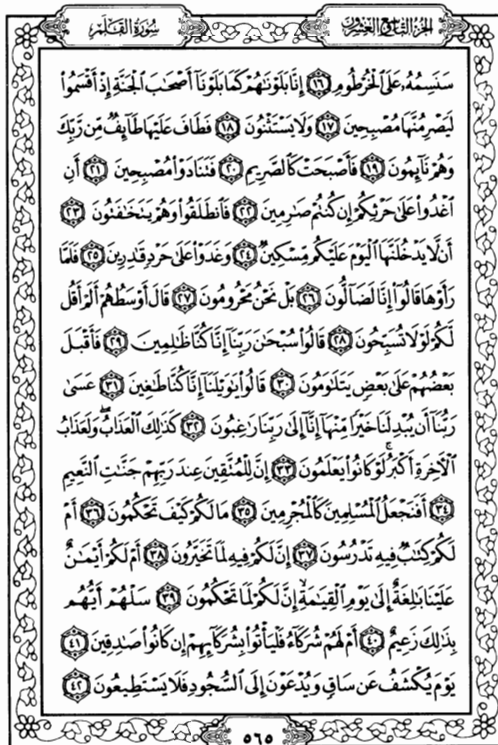 الجزء التاسع والعشرون
سورة القلم
سَنَسِمُهُۥ عَلَى ٱلْخُرْطُومِ ﴿١٦﴾ إِنَّا بَلَوْنَٰهُمْ كَمَا بَلَوْنَآ أَصْحَٰبَ ٱلْجَنَّةِ إِذْ أَقْسَمُوا۟
لَيَصْرِمُنَّهَا مُصْبِحِينَ ﴿١٧﴾ وَلَا يَسْتَثْنُونَ ﴿١٨﴾ فَطَافَ عَلَيْهَا طَآئِفٌ مِّن رَّبِّكَ
وَهُمْ نَآئِمُونَ ﴿١٩﴾ فَأَصْبَحَتْ كَٱلصَّرِيمِ ﴿٢٠﴾ فَتَنَادَوْا۟ مُصْبِحِينَ ﴿٢١﴾ أَنِ
ٱغْدُوا۟ عَلَىٰ حَرْثِكُمْ إِن كُنتُمْ صَٰرِمِينَ ﴿٢٢﴾ فَٱنطَلَقُوا۟ وَهُمْ يَتَخَٰفَتُونَ ﴿٢٣﴾
أَن لَّا يَدْخُلَنَّهَا ٱلْيَوْمَ عَلَيْكُم مِّسْكِينٌ ﴿٢٤﴾ وَغَدَوْا۟ عَلَىٰ حَرْدٍ قَٰدِرِينَ ﴿٢٥﴾ فَلَمَّا
رَأَوْهَا قَالُوٓا۟ إِنَّا لَضَآلُّونَ ﴿٢٦﴾ بَلْ نَحْنُ مَحْرُومُونَ ﴿٢٧﴾ قَالَ أَوْسَطُهُمْ أَلَمْ أَقُل
لَّكُمْ لَوْلَا تُسَبِّحُونَ ﴿٢٨﴾ قَالُوا۟ سُبْحَٰنَ رَبِّنَآ إِنَّا كُنَّا ظَٰلِمِينَ ﴿٢٩﴾ فَأَقْبَلَ
بَعْضُهُمْ عَلَىٰ بَعْضٍ يَتَلَٰوَمُونَ ﴿٣٠﴾ قَالُوا۟ يَٰوَيْلَنَآ إِنَّا كُنَّا طَٰغِينَ ﴿٣١﴾ عَسَىٰ
رَبُّنَآ أَن يُبْدِلَنَا خَيْرًا مِّنْهَآ إِنَّآ إِلَىٰ رَبِّنَا رَٰغِبُونَ ﴿٣٢﴾ كَذَٰلِكَ ٱلْعَذَابُ ۖ وَلَعَذَابُ
ٱلْءَاخِرَةِ أَكْبَرُ ۚ لَوْ كَانُوا۟ يَعْلَمُونَ ﴿٣٣﴾ إِنَّ لِلْمُتَّقِينَ عِندَ رَبِّهِمْ جَنَّٰتِ ٱلنَّعِيمِ
﴿٣٤﴾ أَفَنَجْعَلُ ٱلْمُسْلِمِينَ كَٱلْمُجْرِمِينَ ﴿٣٥﴾ مَا لَكُمْ كَيْفَ تَحْكُمُونَ ﴿٣٦﴾ أَمْ
لَكُمْ كِتَٰبٌ فِيهِ تَدْرُسُونَ ﴿٣٧﴾ إِنَّ لَكُمْ فِيهِ لَمَا تَخَيَّرُونَ ﴿٣٨﴾ أَمْ لَكُمْ أَيْمَٰنٌ
عَلَيْنَا بَٰلِغَةٌ إِلَىٰ يَوْمِ ٱلْقِيَٰمَةِ ۙ إِنَّ لَكُمْ لَمَا تَحْكُمُونَ ﴿٣٩﴾ سَلْهُمْ أَيُّهُم
بِذَٰلِكَ زَعِيمٌ ﴿٤٠﴾ أَمْ لَهُمْ شُرَكَآءُ فَلْيَأْتُوا۟ بِشُرَكَآئِهِمْ إِن كَانُوا۟ صَٰدِقِينَ ﴿٤١﴾
يَوْمَ يُكْشَفُ عَن سَاقٍ وَيُدْعَوْنَ إِلَى ٱلسُّجُودِ فَلَا يَسْتَطِيعُونَ ﴿٤٢﴾
٥٦٥